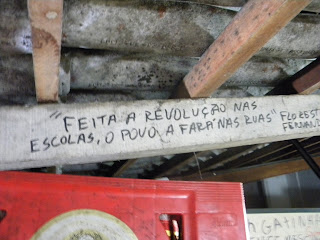 "FEITA A REVOLUÇÃO NAS
ESCOLAS, O POVO A FARÁ NAS RUAS" FLOREST
FERNAND
GATINHA